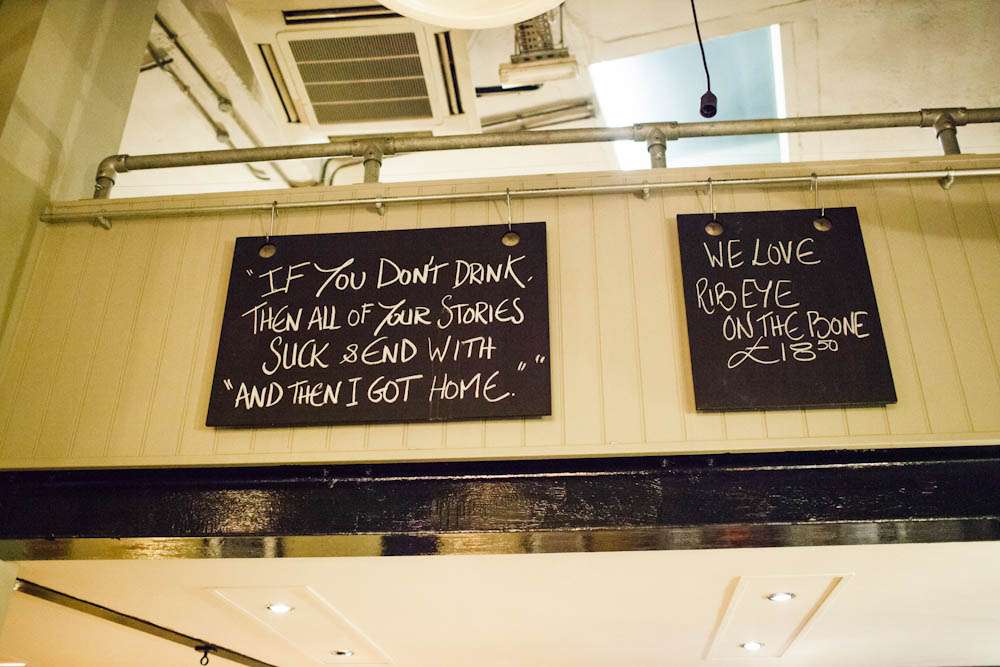 "IF YOU DON'T DRINK,
THEN ALL OF YOUR STORIES
SUCK & END WITH
"AND THEN I GOT HOME.""
WE LOVE
RIB EYE
ON THE BONE
£18 50